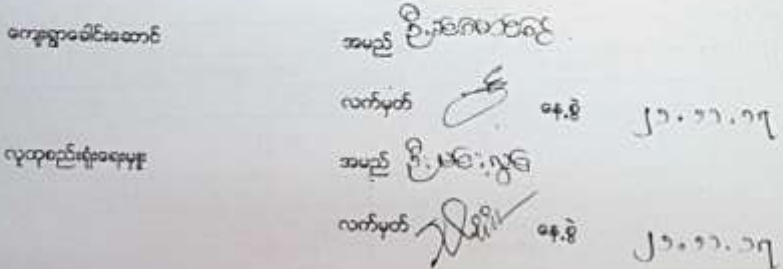 ကျေးရွာခေါင်းဆောင် အမည် ဦး
လက်မှတ် နေ့စွဲ ၂၁.၁၁.၁၇
လူထုစည်းရုံးရေးမှူး အမည် ဦး
လက်မှတ် နေ့စွဲ ၂၁.၁၁.၁၇